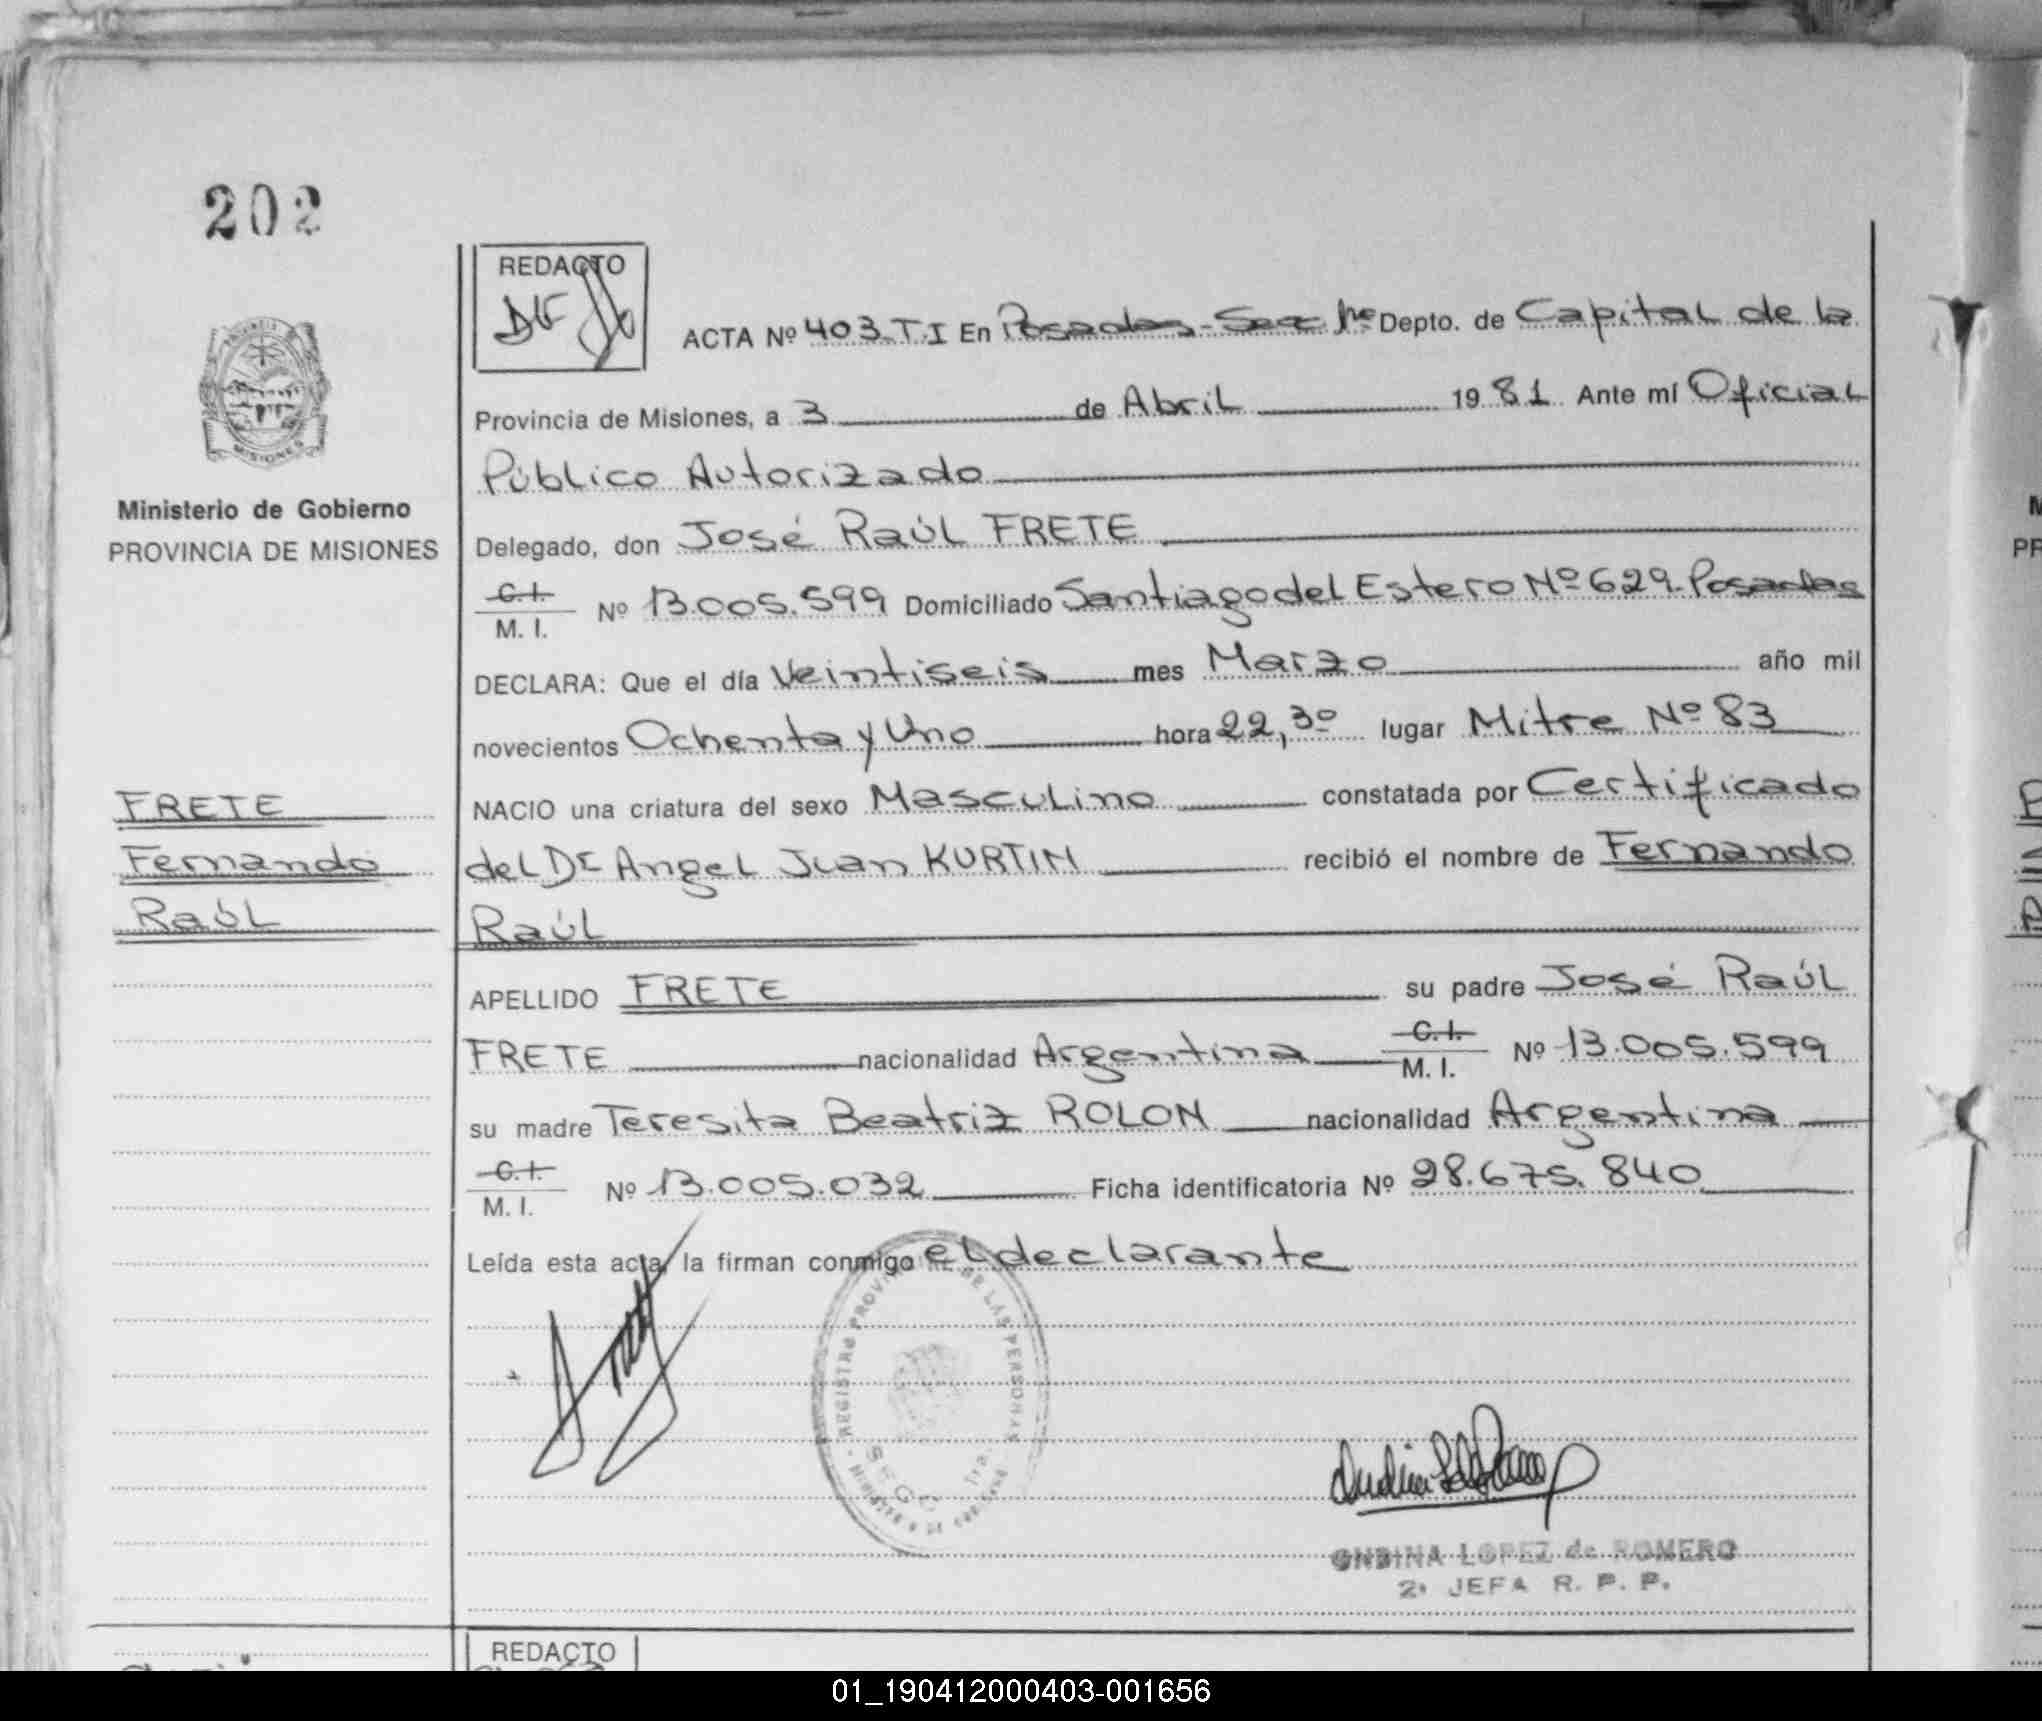 202
REDACTO
ACTA Nº 403.T.I En Posadas - Secc 1ra Depto. de Capital de la
Provincia de Misiones, a 3 de Abril 1981 Ante mí Oficial
Público Autorizado
Ministerio de Gobierno
PROVINCIA DE MISIONES
Delegado, don José Raúl FRETE
C.I.
M. I. Nº 13.005.599 Domiciliado Santiago del Estero Nº 629. Posadas
DECLARA: Que el día Veintiseis mes Marzo año mil
novecientos Ochenta y Uno hora 22,30 lugar Mitre Nº 83
FRETE
Fernando
Raúl
NACIO una criatura del sexo Masculino constatada por Certificado
del Dr Angel Juan KURTIN recibió el nombre de Fernando
Raúl
APELLIDO FRETE su padre José Raúl
FRETE nacionalidad Argentina C.I. M. I. Nº 13.005.599
su madre Teresita Beatriz ROLON nacionalidad Argentina
C.I.
M. I. Nº 13.005.032 Ficha identificatoria Nº 28.675.840
Leída esta acta, la firman conmigo el declarante
REGISTRO PROVINCIAL DE LAS PERSONAS
MINISTERIO DE GOBIERNO
ONDINA LOPEZ de ROMERO
2ª JEFA R. P. P.
REDACTO
01_190412000403-001656